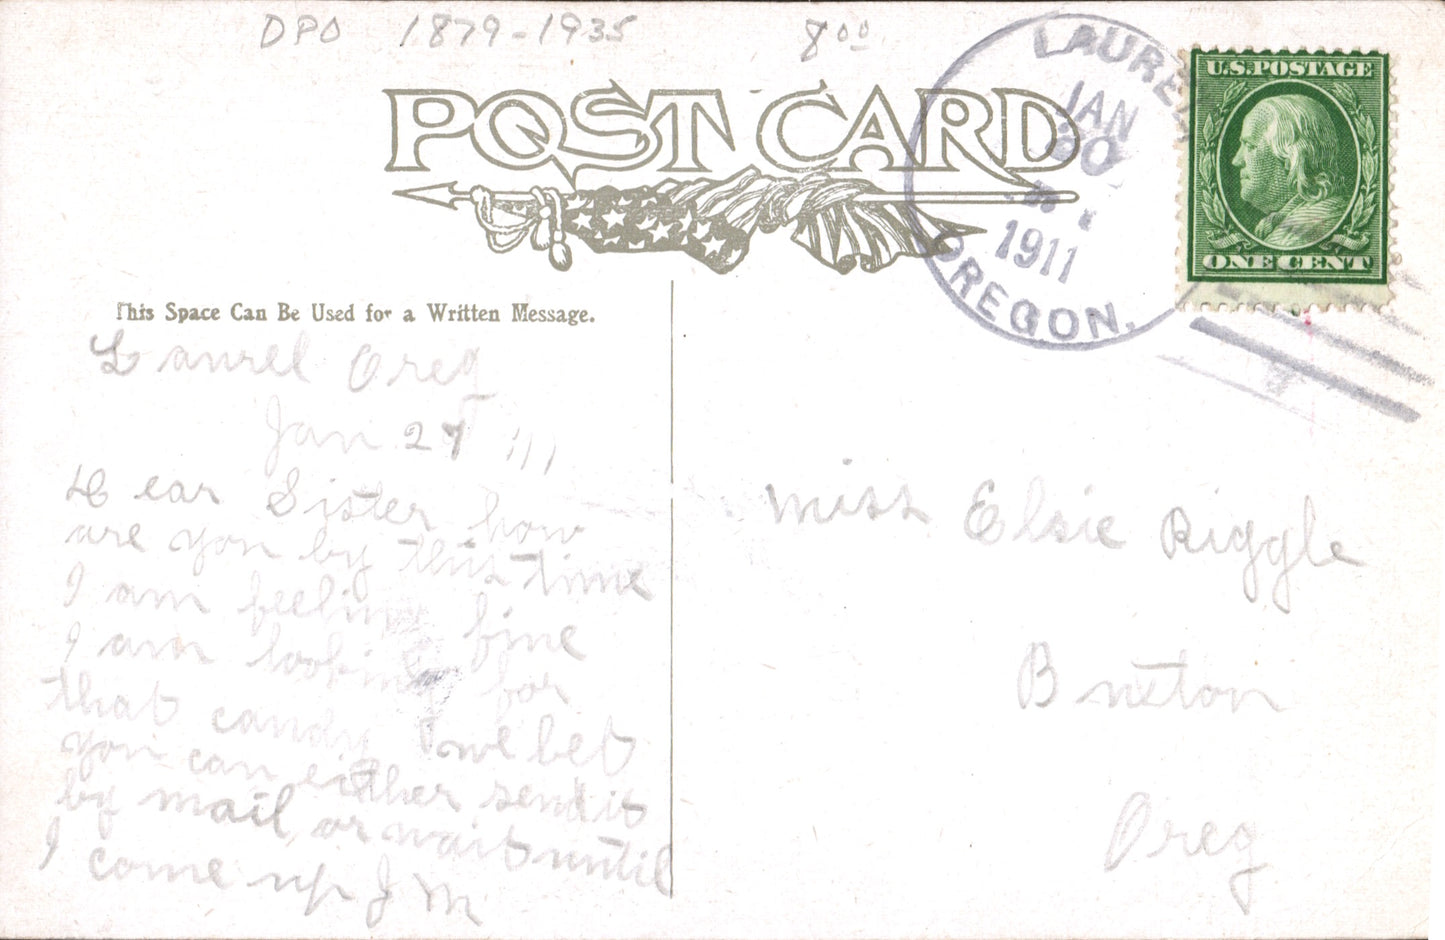 DPO 1879-1935 8⁰⁰
POST CARD
LAUREL
JAN
30
1911
OREGON.
U.S. POSTAGE
ONE CENT
This Space Can Be Used for a Written Message.
Laurel Oreg
Jan 27 '11
Dear Sister how
are you by this time
I am feeling fine
I am looking for
that candy we bet
you can either send it
by mail or wait until
I come up J M
Miss Elsie Riggle
Buxton
Oreg